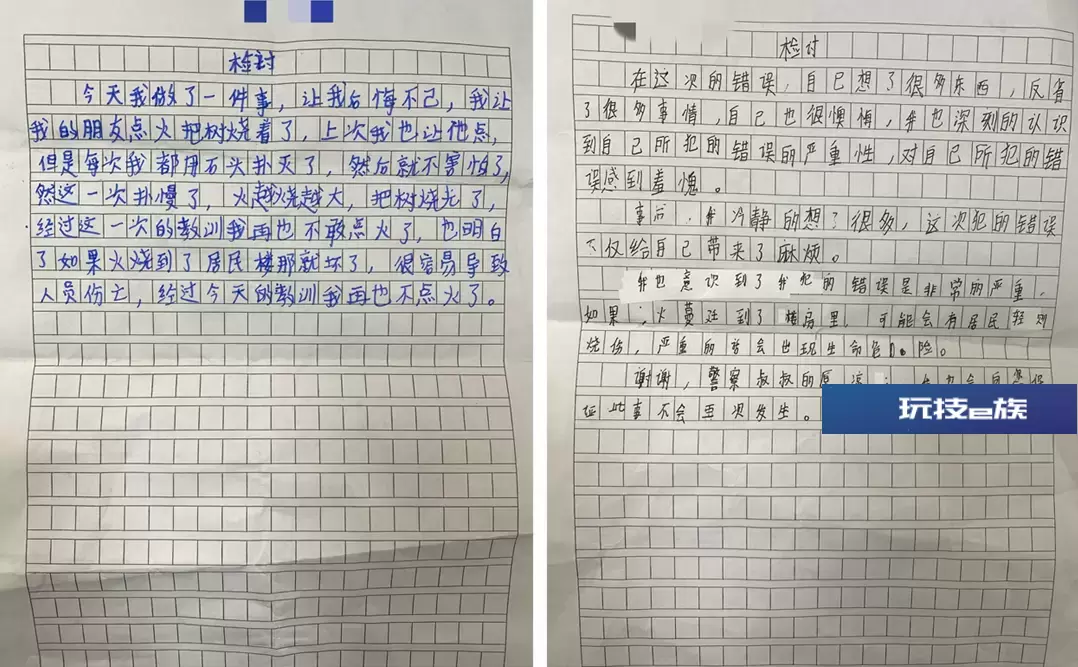 检讨
今天我做了一件事，让我后悔不已，我让
我的朋友点火把树烧着了，上次我也让他点，
但是每次我都用石头扑灭了，然后就不害怕了，
然这一次扑慢了，火越烧越大，把树烧光了，
经过这一次的教训我再也不敢点火了，也明白
了如果火烧到了居民楼那就坏了，很容易导致
人员伤亡，经过今天的教训我再也不点火了。
检讨
在这次的错误，自己想了很多东西，反省
了很多事情，自己也很懊悔，我也深刻的认识
到自己所犯的错误的严重性，对自己所犯的错
误感到羞愧。
事后，我冷静的想了很多，这次犯的错误
不仅给自己带来了麻烦。
我也意识到了我犯的错误是非常的严重，
如果，火蔓延到了楼房里，可能会有居民轻则
烧伤，严重的话会出现生命危险。
谢谢，警察叔叔的原谅，我也会自
此事不会再次发生。
玩技e族